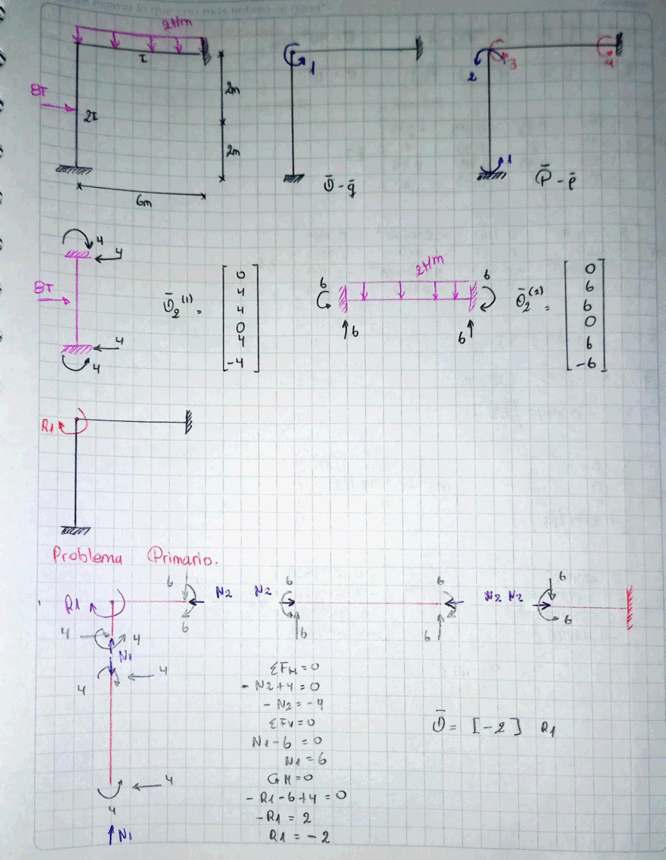 2T/m
I
8T
2I
2m
2m
6m
1
Q̄-q̄
2
3
4
1
P̄-ē
4
4
8T
4
4
Q̄₂⁽¹⁾ =
0
4
4
0
4
-4
2T/m
6
6
6
6
Q̄₂⁽²⁾ =
0
6
6
0
6
-6
R1
Problema Primario.
R1
6
6
N2
N2
6
6
6
6
N2
N2
6
6
4
4
N1
4
4
4
4
N1
ΣFH=0
-N2+4=0
-N2=-4
ΣFV=0
N1-6=0
N1=6
GM=0
-R1-6+4=0
-R1=2
R1=-2
Q̄= [-2] R1